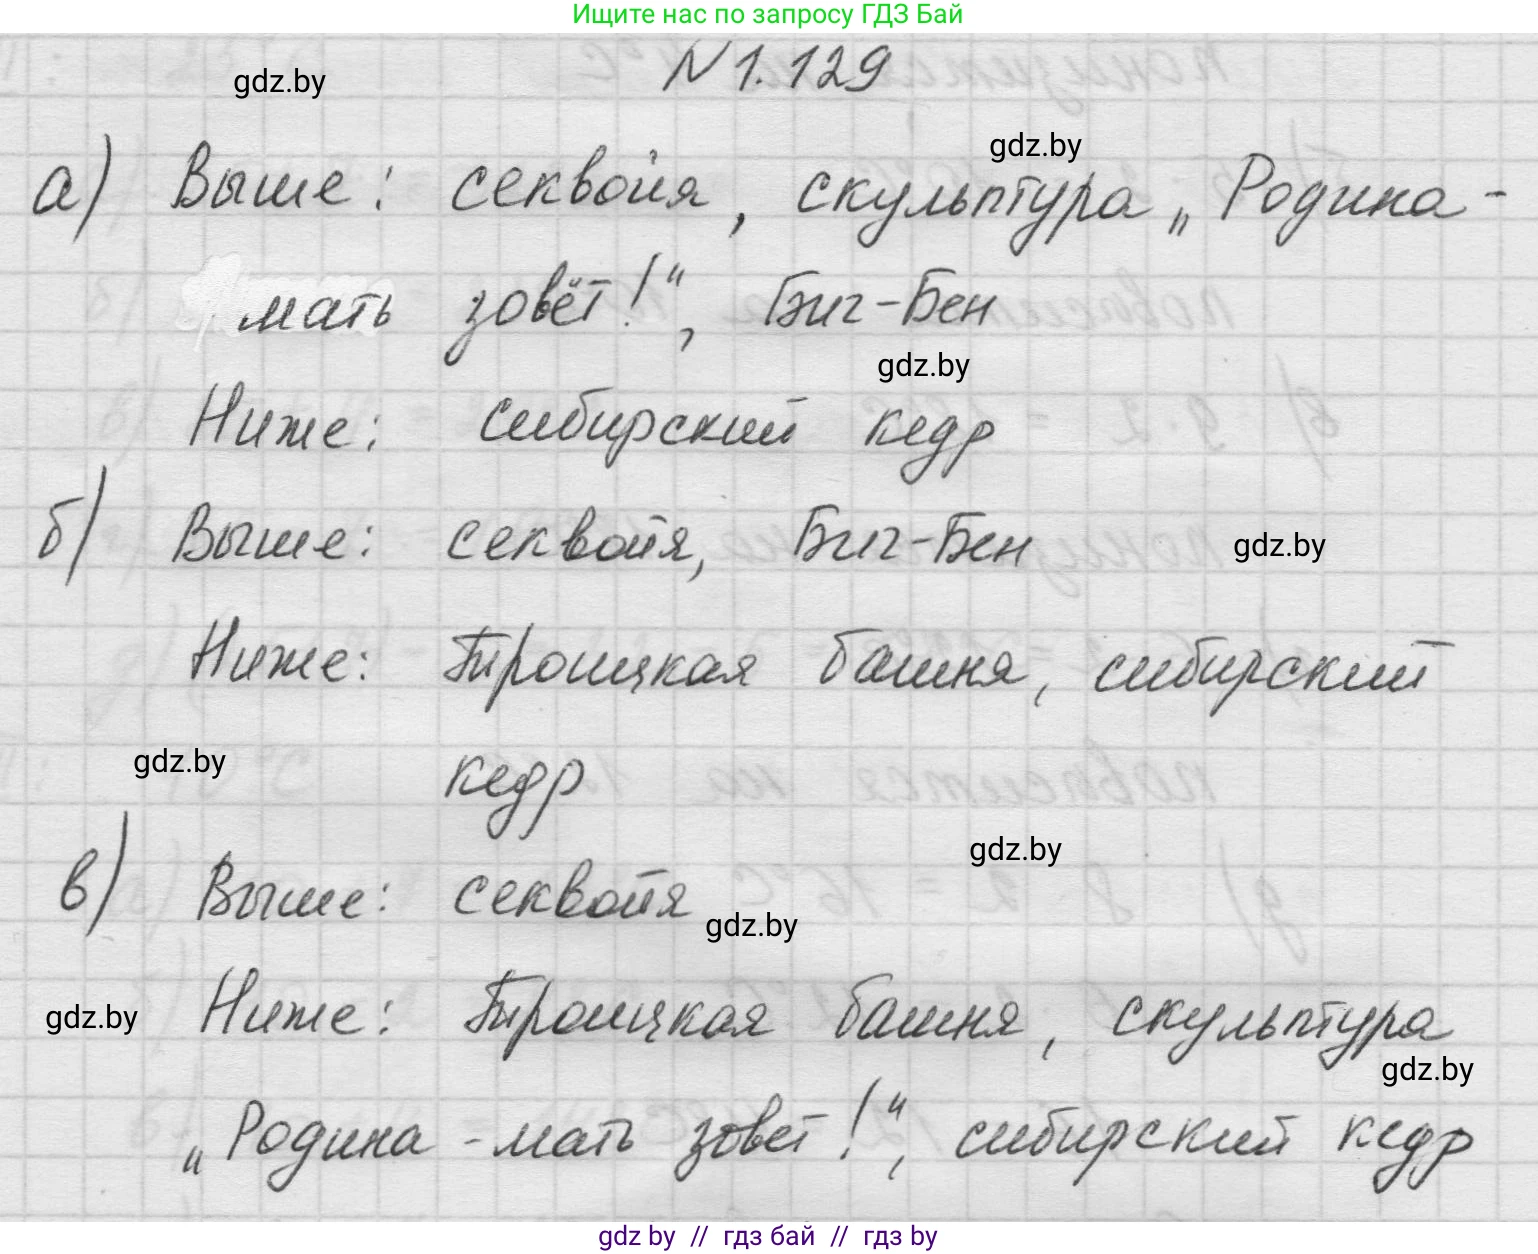 Ищите нас по запросу ГДЗ Бай
gdz.by
N 1.129
gdz.by
а) Выше: секвойя, скульптура „Родина-
мать зовёт!“, Биг-Бен
gdz.by
Ниже: сибирский кедр
б) Выше: секвойя, Биг-Бен
gdz.by
Ниже: Троицкая башня, сибирский
gdz.by
кедр
gdz.by
в) Выше: секвойя
gdz.by
gdz.by
Ниже: Троицкая башня, скульптура
gdz.by
„Родина-мать зовет!“, сибирский кедр
gdz by // гдз бай // гдз by